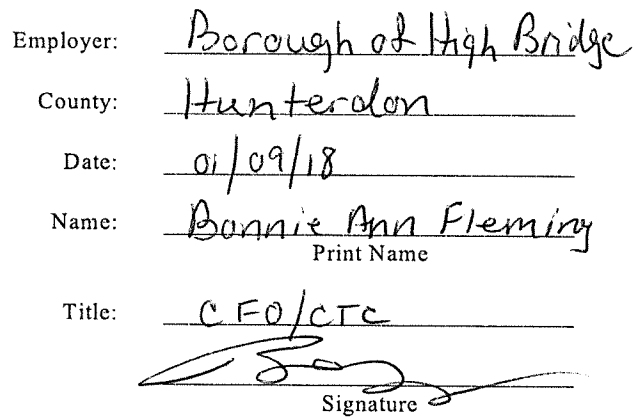 Employer: Borough of High Bridge
County: Hunterdon
Date: 01/09/18
Name: Bonnie Ann Fleming
Print Name
Title: CFO/CTC
Signature